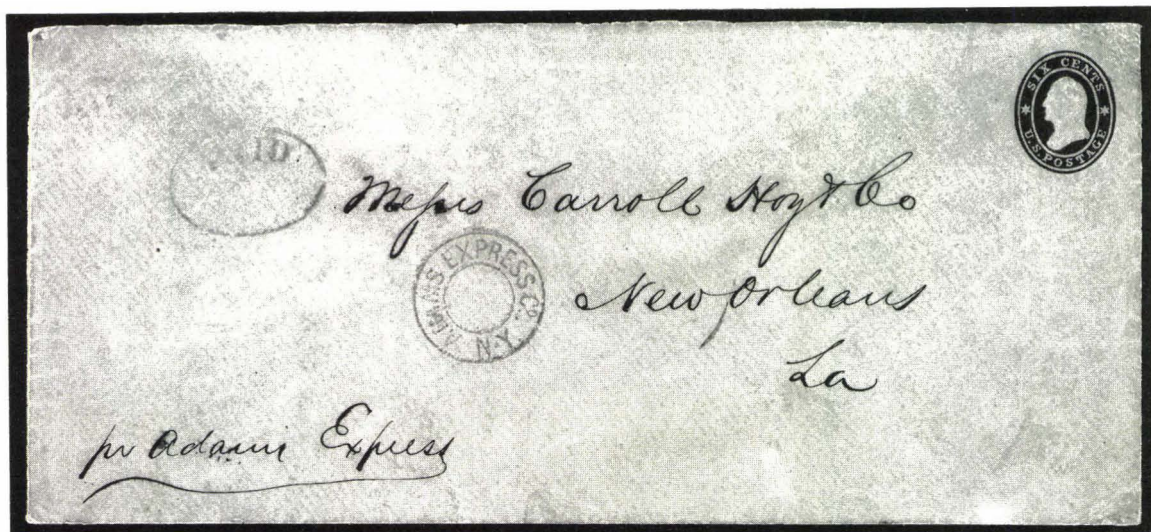 SIX CENTS
U.S. POSTAGE
PAID
Messrs Carroll Hoy & Co
ADAMS EXPRESS Co. N.Y.
New Orleans
La
pr Adams Express